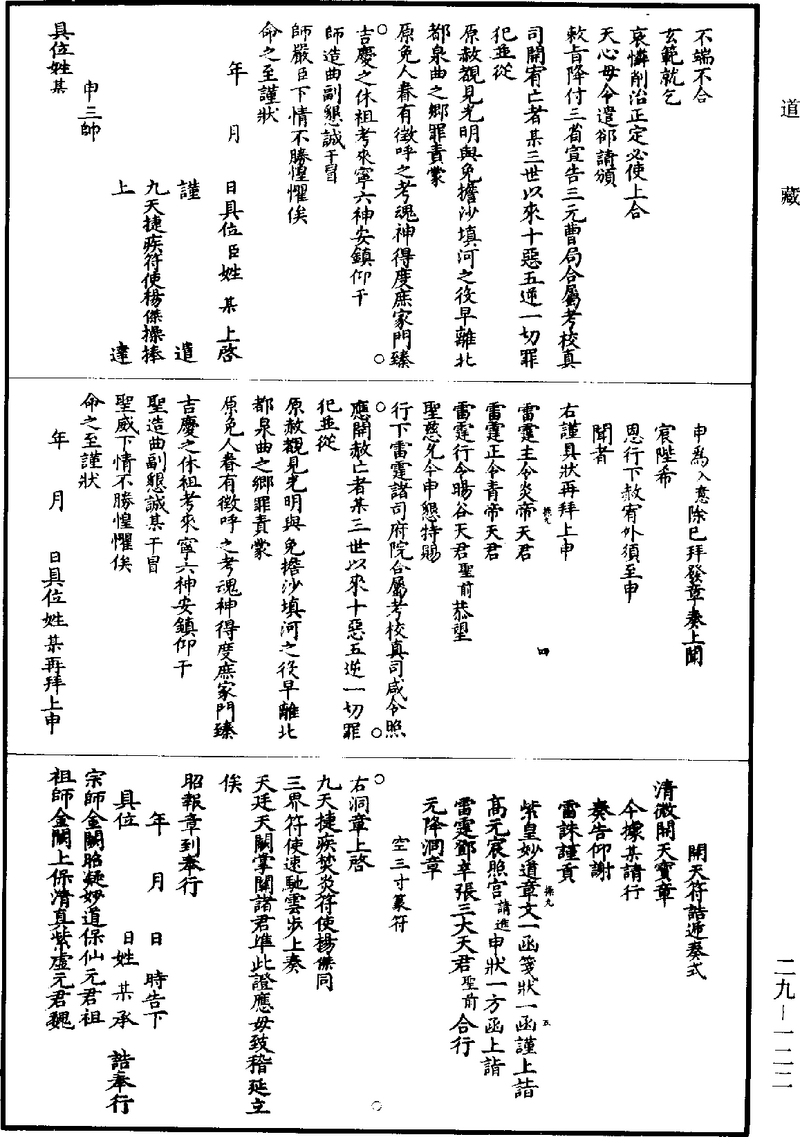 道藏
不端不合
玄範就乞
哀憐削治正定必使上合
天心毋令遣郤請頒
敕旨降付三省宣告三元曹局合屬考校真
司開宥亡者某三世以來十惡五逆一切罪
犯並從
原赦覩見光明與免擔沙填河之役早離北
都泉曲之鄉罪責蒙
原免人眷有徵呼之考魂神得度庶家門臻
吉慶之休祖考來寧六神安鎮仰干
師造曲副懇誠干冒
師嚴臣下情不勝惶懼俟
命之至謹狀
年 月 日具位臣姓某上啓
謹遣
九天捷疾符使楊傑操捧
上達
申三帥
具位姓某
申為入意除已拜發章奏上聞
宸陛希
恩行下赦宥外須至申
聞者
右謹具狀再拜上申
雷霆主令炎帝天君
雷霆正令青帝天君
雷霆行令暘谷天君聖前恭望
聖慈允今申懇特賜
行下雷霆諸司府院合屬考校真司咸令照
應開赦亡者某三世以來十惡五逆一切罪
犯並從
原赦覩見光明與免擔沙填河之役早離北
都泉曲之鄉罪責蒙
原免人眷有徵呼之考魂神得度庶家門臻
吉慶之休祖考來寧六神安鎮仰干
聖造曲副懇誠某干冒
聖威下情不勝惶懼俟
命之至謹狀
年 月 日具位姓某再拜上申
開天符誥遞奏式
清微開天寶章
今據某請行
奏告仰謝
雷誅謹貢
紫皇妙道章文一函箋狀一函謹上詣
高元宸照宮請進申狀一方函上詣
雷霆鄧辛張三大天君聖前合行
元降洞章
空三寸篆符
右洞章上啓
九天捷疾焚炎符使楊傑同
三界符使速馳雲步上奏
天廷天關掌關諸君準此證應毋致稽延立
俟
昭報章到奉行
年 月 日 時告下
具位 日姓某承誥奉行
宗師金闕昭凝妙道保仙元君祖
祖師金闕上保清真紫虛元君魏
二九－一二二